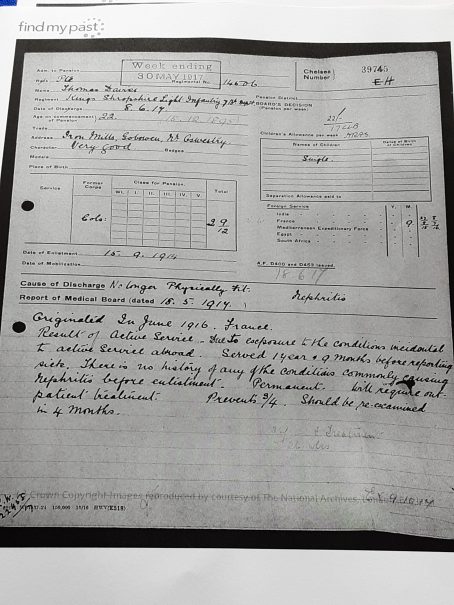 findmypast
Week ending
30 MAY 1917
Chelsea Number } 39745
E H
Adm. to Pension
Rank Pte Regimental No. 14506
Name Thomas Davies
Pension District
Regiment Kings Shropshire Light Infantry 7 Bn
BOARD'S DECISION
(Pension per week)
Date of Discharge 8.6.17
Age on commencement of Pension } 22
Trade
Children's Allowance per week
Address Iron Mills, Gobowen, Nr Oswestry
Names of Children
Dates of Birth of Children
Character Very Good Badges
Single.
Medals
Place of Birth
Separation Allowance paid to
Service
Former Corps
Class for Pension.
Total
WI. I. II. III. IV. V.
Foreign Service Y. M.
India
France 9
Mediterranean Expeditionary Force
Egypt
South Africa
Cols: 2 9/12
Date of Enlistment 15.9.1914
Date of Mobilization
A.F. D400 and D459 issued
18 6 17
Cause of Discharge No longer Physically Fit.
Report of Medical Board (dated 18.5.1917.) Nephritis
Originated In June 1916. France.
Result of Active Service. Due to exposure to the conditions incidental
to active service abroad. Served 1 year & 9 months before reporting
sick. There is no history of any of the conditions commonly causing
Nephritis before enlistment. Permanent. Will require out-
patient treatment. Prevents 3/4. Should be re-examined
in 4 Months.
Crown Copyright Images reproduced by courtesy of The National Archives, London